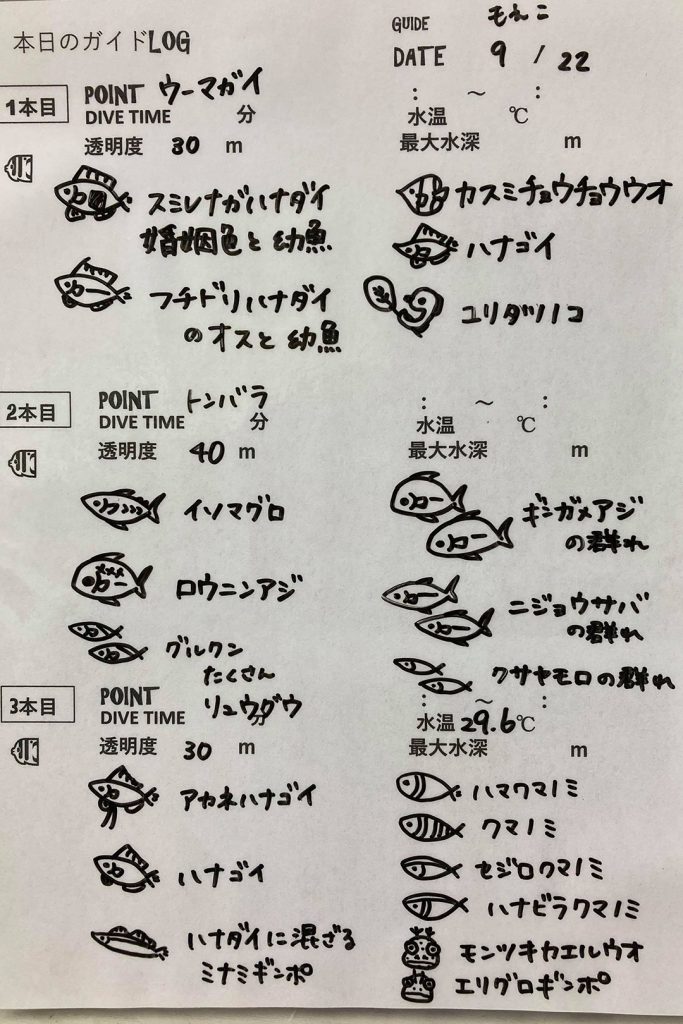 本日のガイドLOG
GUIDE もえこ
DATE 9 / 22
1本目 POINT ウーマガイ
DIVE TIME 分 : ～ :
透明度 30 m 水温 ℃
最大水深 m
スミレナガハナダイ
婚姻色と幼魚
フチドリハナダイ
のオスと幼魚
カスミチョウチョウウオ
ハナゴイ
ユリタツノコ
2本目 POINT トンバラ
DIVE TIME 分 : ～ :
透明度 40 m 水温 ℃
最大水深 m
イソマグロ
ロウニンアジ
グルクン
たくさん
ギンガメアジ
の群れ
ニジョウサバ
の群れ
クサヤモロの群れ
3本目 POINT リュウグウ
DIVE TIME 分 : ～ :
透明度 30 m 水温 29.6℃
最大水深 m
アカネハナゴイ
ハナゴイ
ハナダイに混ざる
ミナミギンポ
ハマクマノミ
クマノミ
セジロクマノミ
ハナビラクマノミ
モンツキカエルウオ
エリグロギンポ